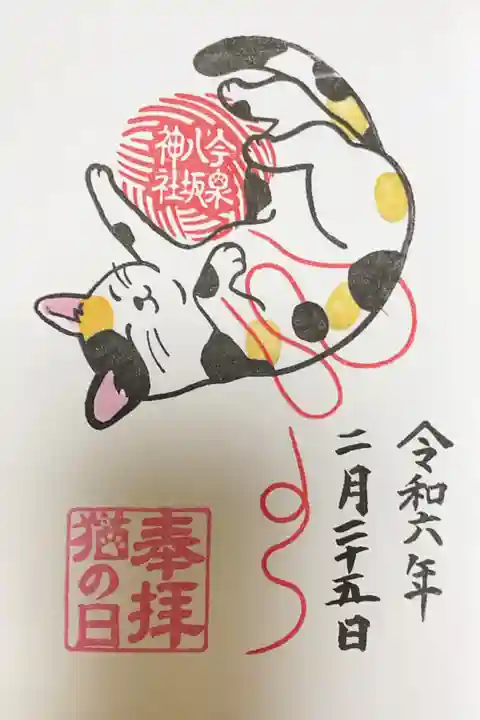 今泉
八坂
神社
令和六年
二月二十五日
奉拝
猫の日